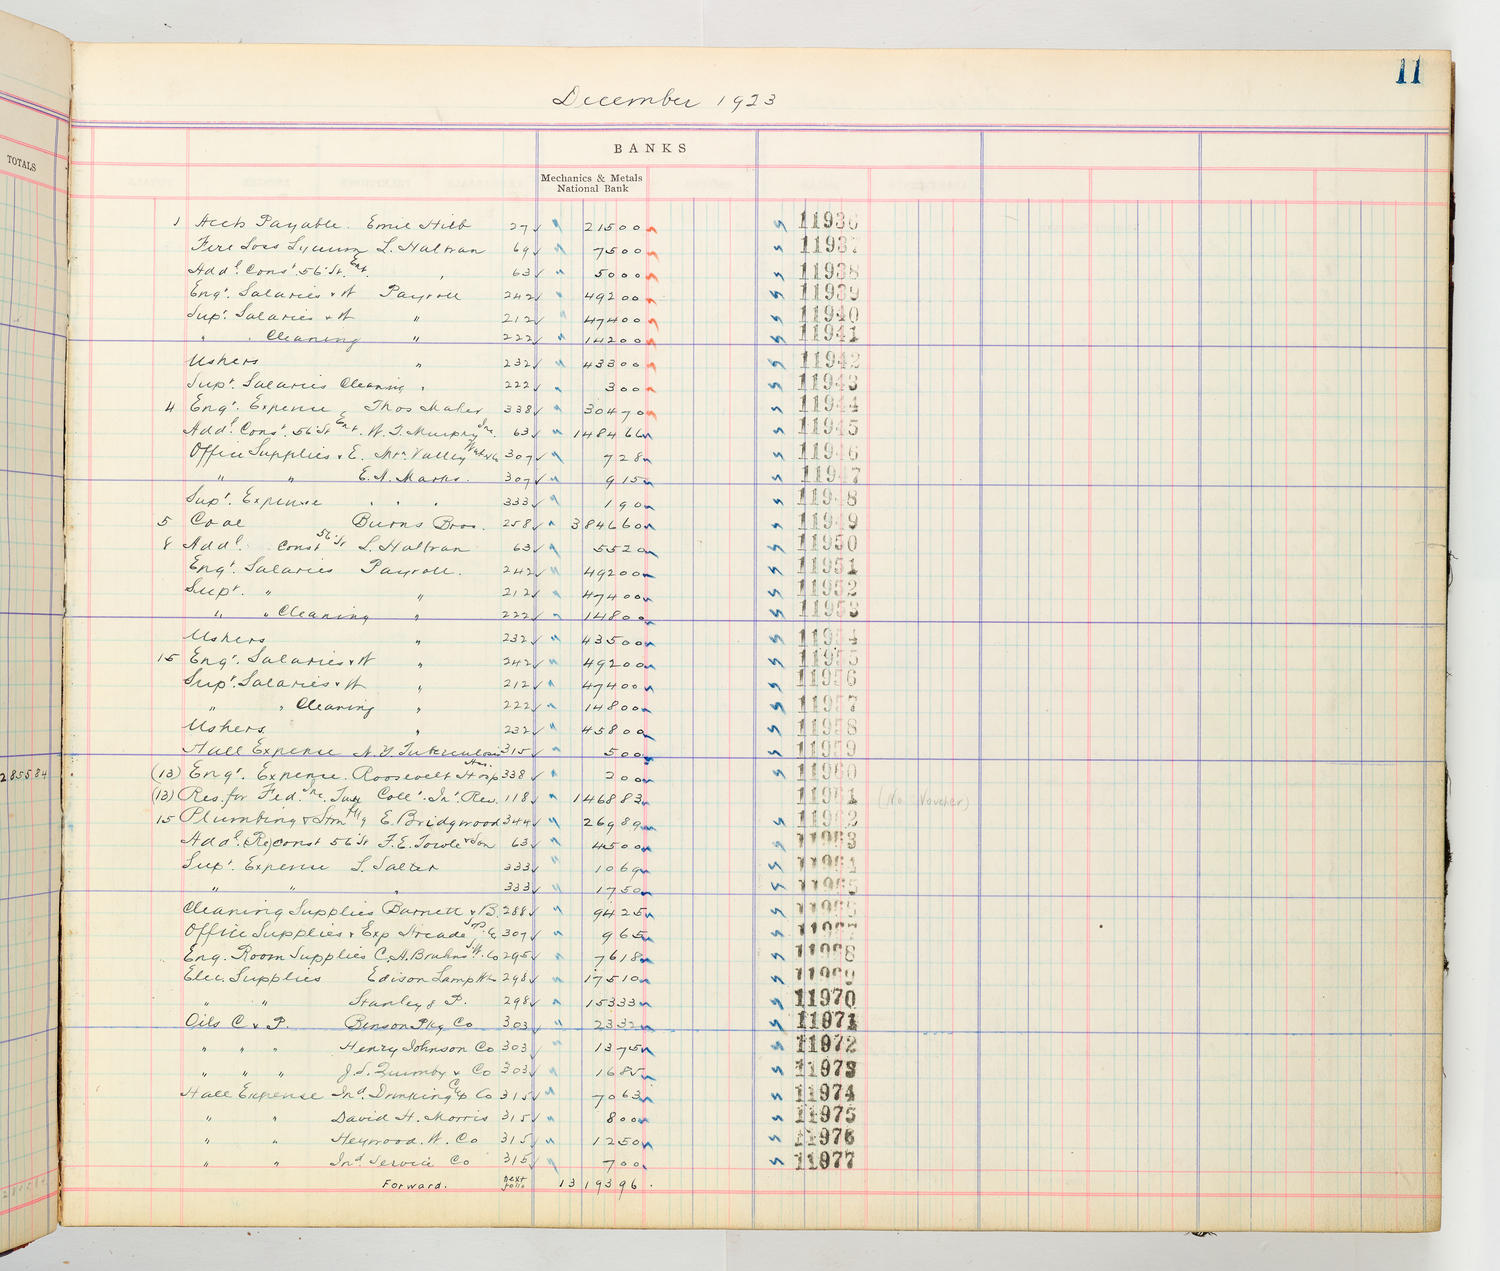 11
December 1923
TOTALS
BANKS
Mechanics & Metals
National Bank
1 Accts Payable. Emil Hilb 27 215 00 11936
Fire Loss L. Haltran 69 75 00 11937
Add'l Const. 56 St. Ent. " 63 50 00 11938
Eng'. Salaries & W Payroll 242 492 00 11939
Sup'. Salaries & W " 212 474 00 11940
" " Cleaning " 222 142 00 11941
Ushers " 232 433 00 11942
Sup'. Salaries Cleaning " 222 3 00 11943
4 Eng'. Expense Thos Maher 338 304 70 11944
Add'l Const. 56 St Ent. W. J. Murphy Inc. 63 1484 66 11945
Office Supplies & E. Mtn Valley Water Co 307 7 28 11946
" " E. A. Marks. 307 9 15 11947
Sup'. Expense " " " 333 1 90 11948
5 Coal Burns Bros. 258 3846 60 11949
8 Add'l. Const 56 St L. Haltran 63 55 20 11950
Eng'. Salaries Payroll. 242 492 00 11951
Sup'. " " 212 474 00 11952
" " Cleaning " 222 148 00 11953
Ushers " 232 435 00 11954
15 Eng'. Salaries & W " 242 492 00 11955
Sup'. Salaries & W " 212 474 00 11956
" " Cleaning " 222 148 00 11957
Ushers. " 232 458 00 11958
Hall Expense N. Y. Tuberculosis 315 5 00 11959
(13) Eng'. Expense. Roosevelt Hosp 338 2 00 11960
(13) Res. for Fed. Inc. Tax Coll'. In'. Rev. 118 1468 83 11961 (No Voucher)
15 Plumbing & Stm Htg E. Bridgwood 344 269 89 11962
Add'l. (Re)const 56 St F. E. Towle & Son 63 45 00 11963
Sup'. Expense L. Salter 333 10 69 11964
" " " 333 17 50 11965
Cleaning Supplies Barnett & B. 288 94 25 11966
Office Supplies & Exp Arcade 307 9 65 11967
Eng. Room Supplies C. H. Bruhns W. Co 295 76 18 11968
Elec. Supplies Edison Lamp Wks 298 175 10 11969
" " Stanley & P. 298 153 33 11970
Oils C & P. Benson Pkg Co 303 23 32 11971
" " " Henry Johnson Co 303 13 75 11972
" " " J. S. Quimby & Co 303 16 85 11973
Hall Expense Ind. Drinking Cup Co 315 70 63 11974
" " David H. Morris 315 8 00 11975
" " Heywood. W. Co 315 12 50 11976
" " Ind. Service Co 315 7 00 11977
Forward. next folio 13193 96
2855 84